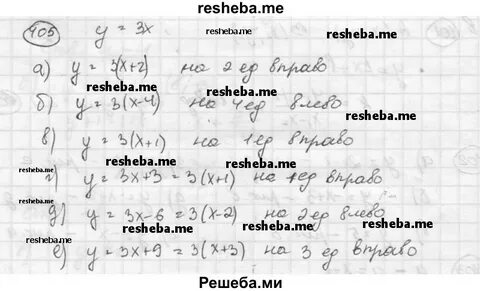 resheba.me
405 y = 3x resheba.me
а) y = 3(x+2) на 2 ед вправо
resheba.me resheba.me
б) y = 3(x-4) на 4 ед влево
resheba.me
в) y = 3(x+1) на 1 ед вправо
resheba.me resheba.me
г) y = 3x+3 = 3(x+1) на 1 ед вправо
resheba.me
д) y = 3x-6 = 3(x-2) на 2 ед влево
resheba.me resheba.me
е) y = 3x+9 = 3(x+3) на 3 ед вправо
resheba.me
Решеба.ми